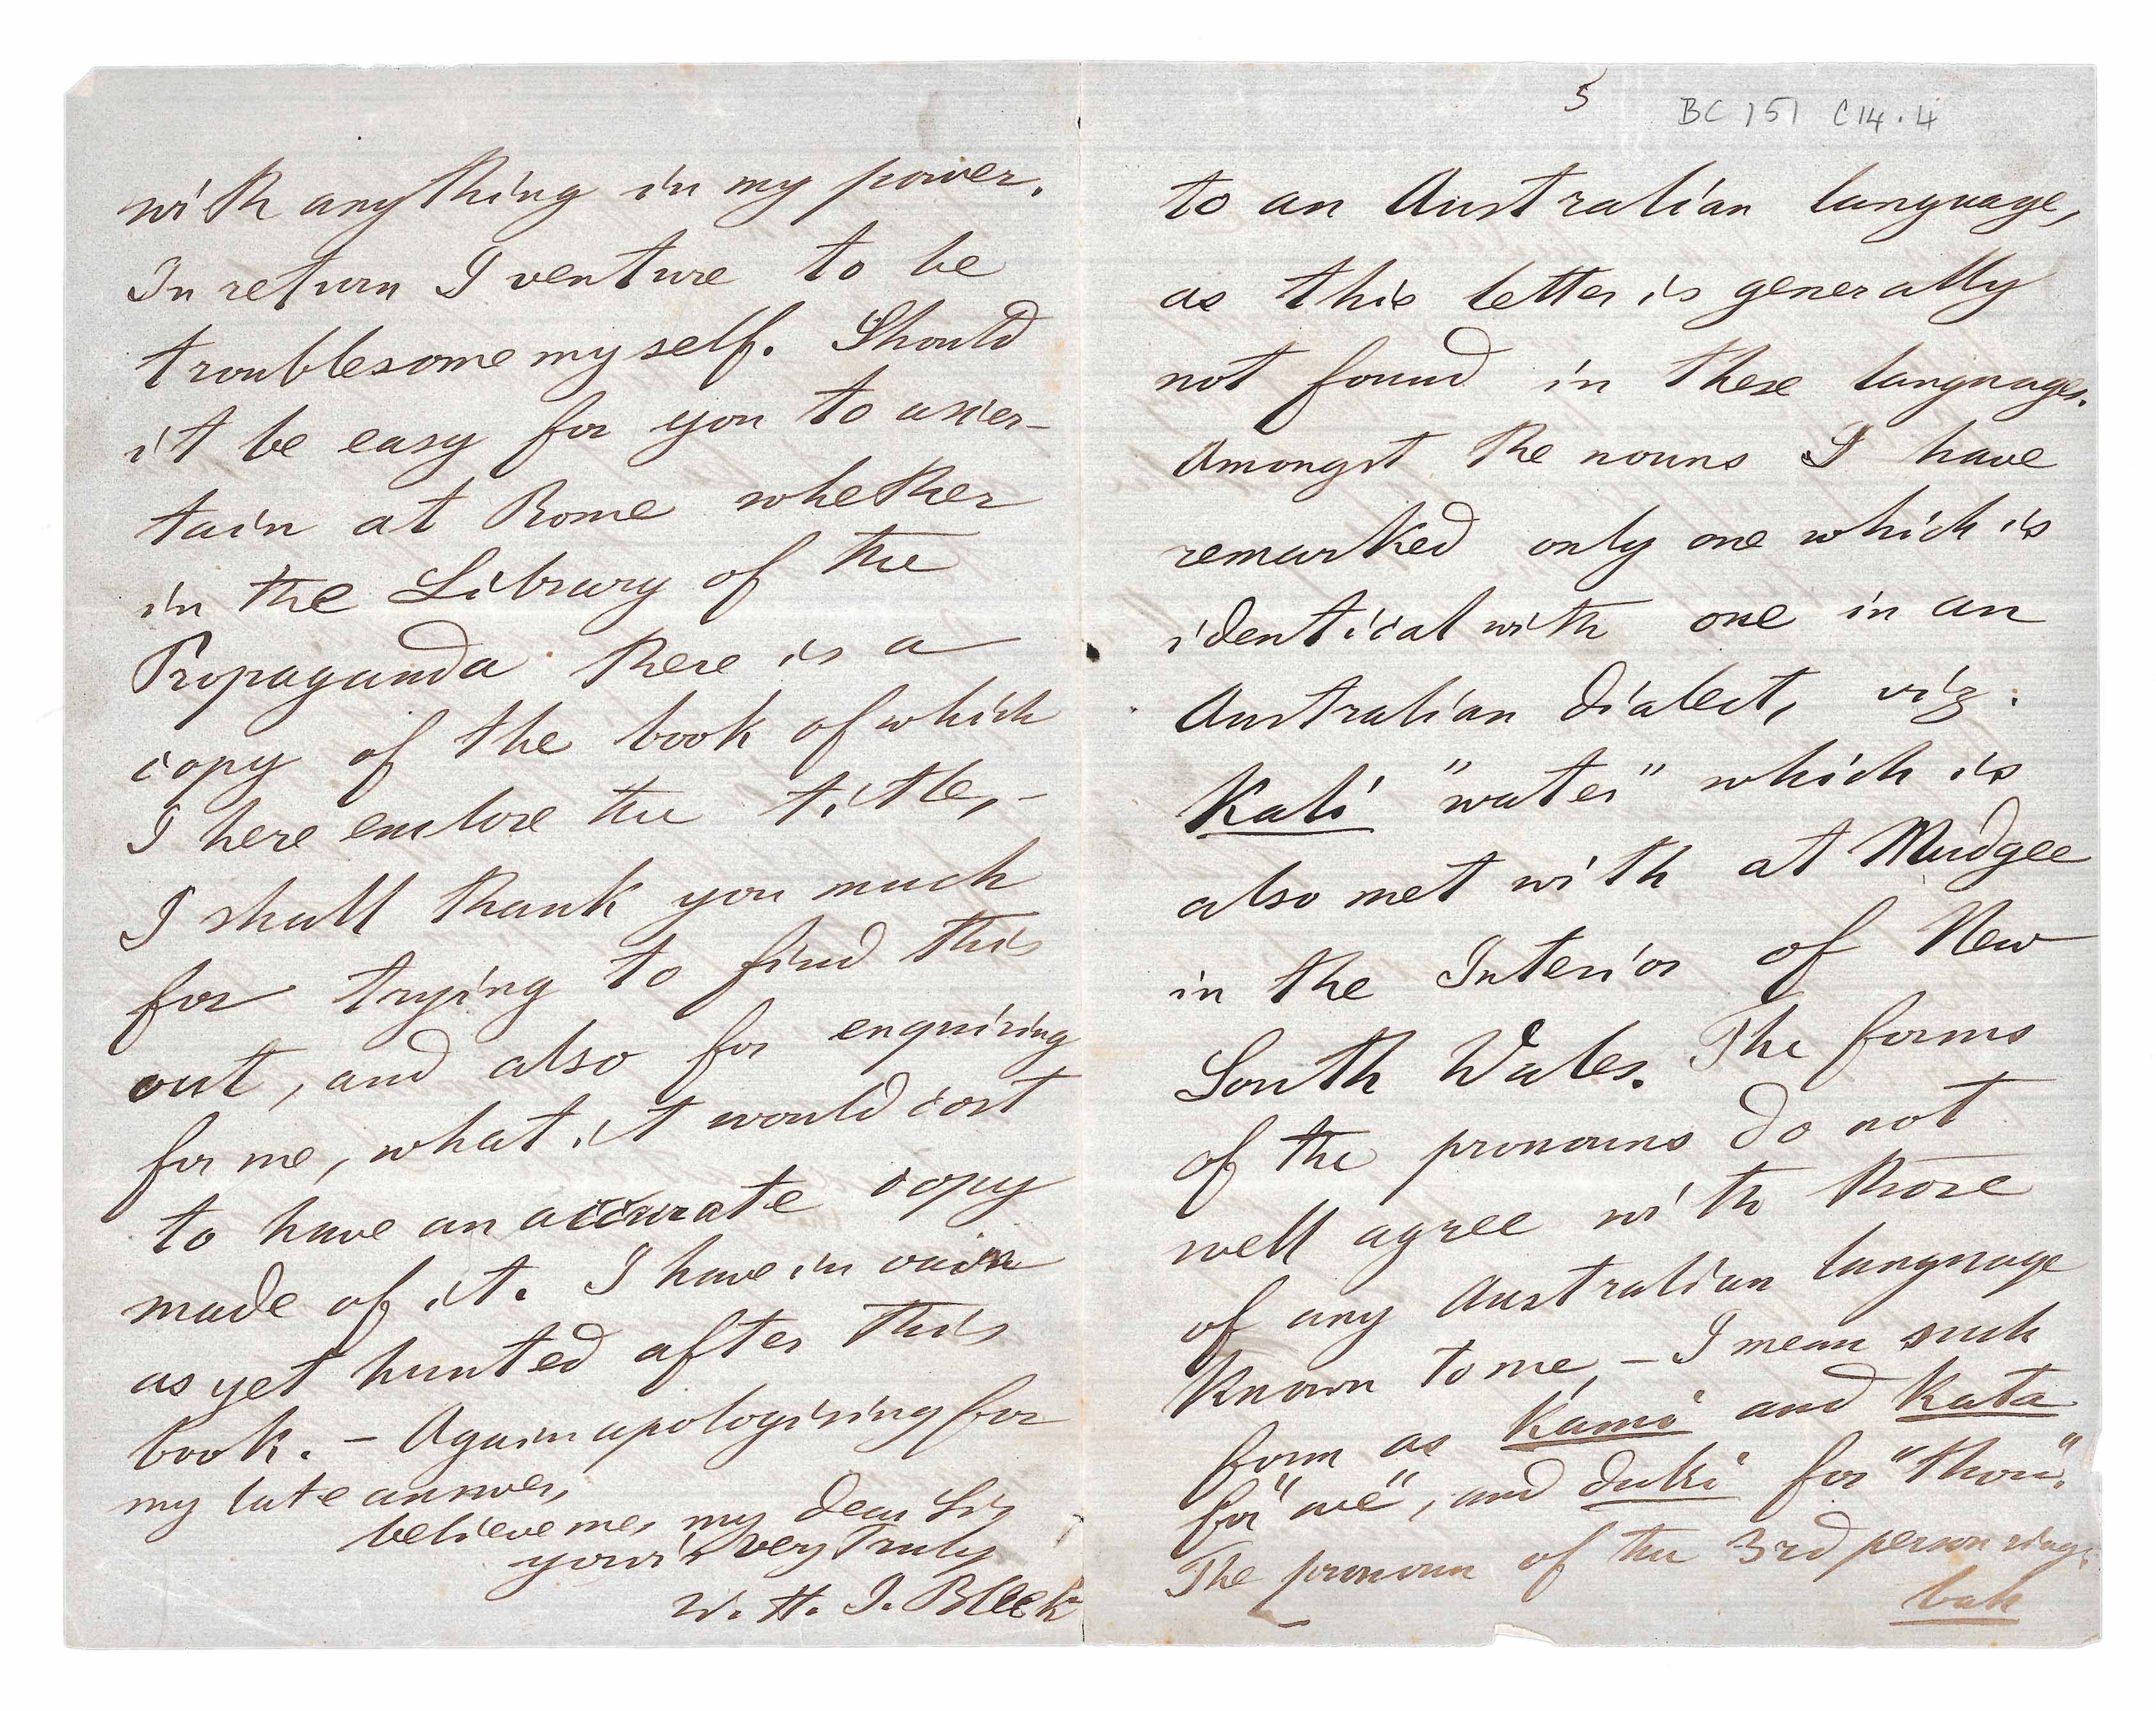 with anything in my power.
In return I venture to be
troublesome myself. Should
it be easy for you to ascer-
tain at Rome whether
in the Library of the
Propaganda there is a
copy of the book of which
I here enclose the title, -
I shall thank you much
for trying to find this
out, and also for enquiring
for me, what it would cost
to have an accurate copy
made of it. I have in vain
as yet hunted after this
book. - Again apologising for
my late answer,
believe me, my dear Sir
your's very truly
W. H. I. Bleek
5
BC 151 C14.4
to an Australian language,
as this letter is generally
not found in these languages.
Amongst the nouns I have
remarked only one which is
identical with one in an
Australian dialect, viz.
Kali "water" which is
also met with at Mudgee
in the Interior of New
South Wales. The forms
of the pronouns do not
well agree with those
of any Australian language
known to me, - I mean such
form as Kami and Kata
for "we", and duki for "thou".
The pronoun of the 3rd person sing.
bah